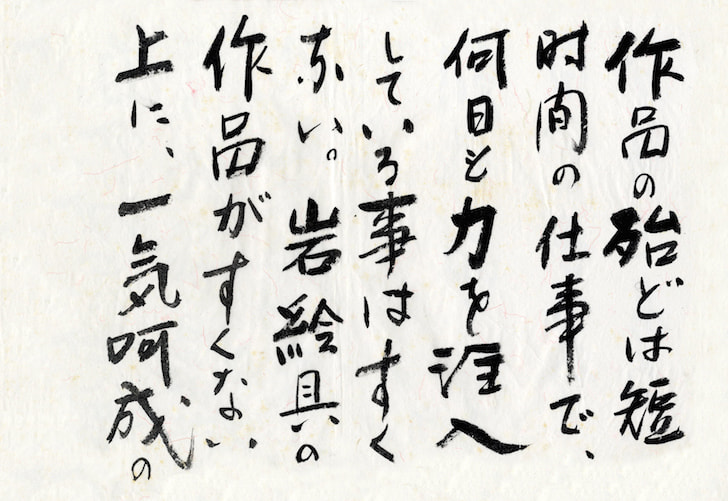 作品の殆どは短
時間の仕事で、
何日も力を注入
している事はすく
ない。岩絵具の
作品がすくない
上に、一気呵成の